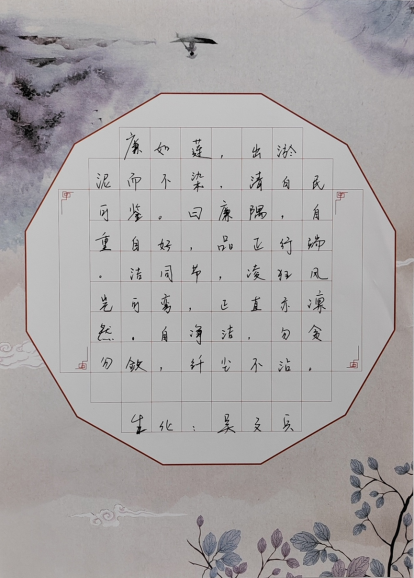 廉如莲，出淤
泥而不染，清自民
可鉴。曰廉隅，自
重自好，品正行端
。洁同节，凌狂风
岂可弯，正直亦凛
然。自净洁，勿贪
勿敛，纤尘不沾。
生化：吴文兵